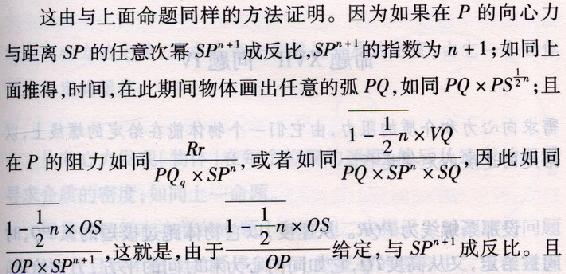 这由与上面命题同样的方法证明。因为如果在 P 的向心力
与距离 SP 的任意次幂 SPⁿ⁺¹ 成反比，SPⁿ⁺¹ 的指数为 n + 1；如同上
面推得，时间，在此期间物体画出任意的弧 PQ，如同 PQ × PS^{\frac{1}{2}n}；且
在 P 的阻力如同 \frac{Rr}{PQ_q × SP^n}，或者如同 \frac{\overline{1 - \frac{1}{2}n} × VQ}{PQ × SP^n × SQ}，因此如同
\frac{\overline{1 - \frac{1}{2}n} × OS}{OP × SP^{n+1}}，这就是，由于 \frac{\overline{1 - \frac{1}{2}n} × OS}{OP} 给定，与 SPⁿ⁺¹ 成反比。且